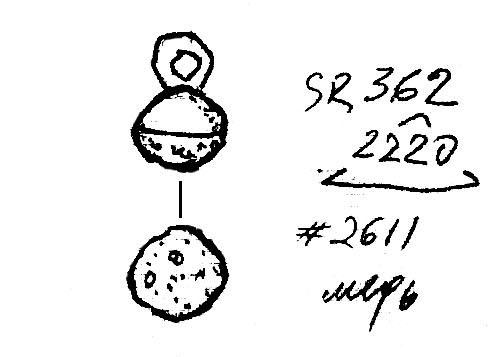 SR 362
2220
#2611
медь